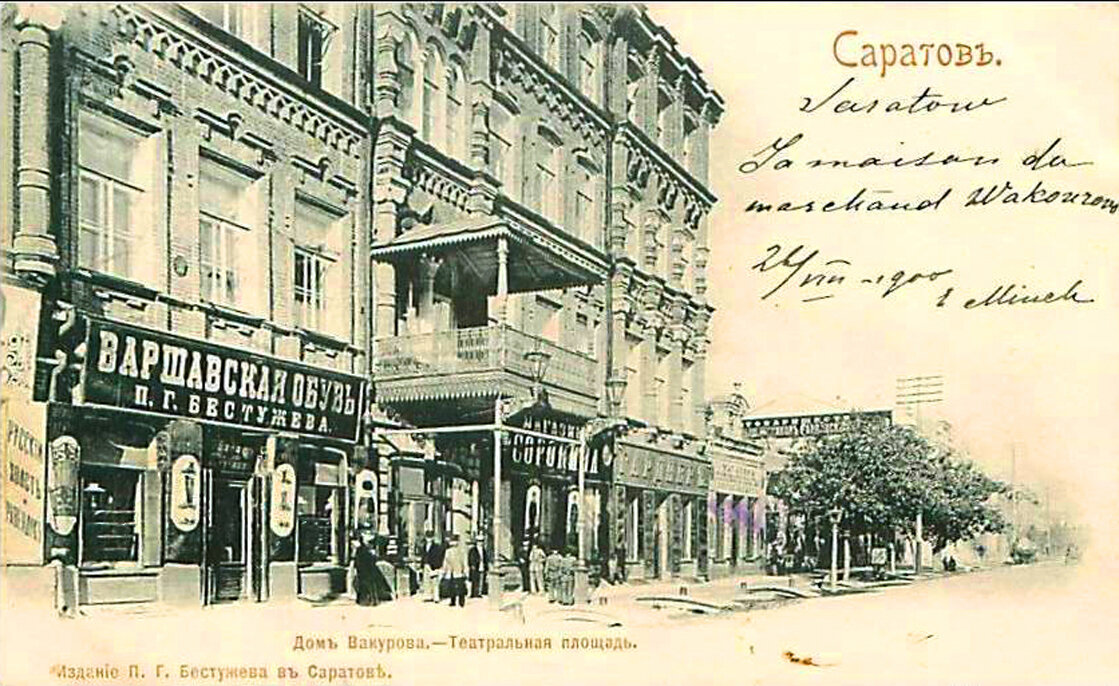 Саратовъ.
Saratow
La maison du
marchand Wakourow
ВАРШАВСКАЯ ОБУВЬ
П. Г. БЕСТУЖЕВА.
МАГАЗИНЪ
СОРОКИНА
РУССКІЙ
Домъ Вакурова.—Театральная площадь.
Изданіе П. Г. Бестужева въ Саратовѣ.